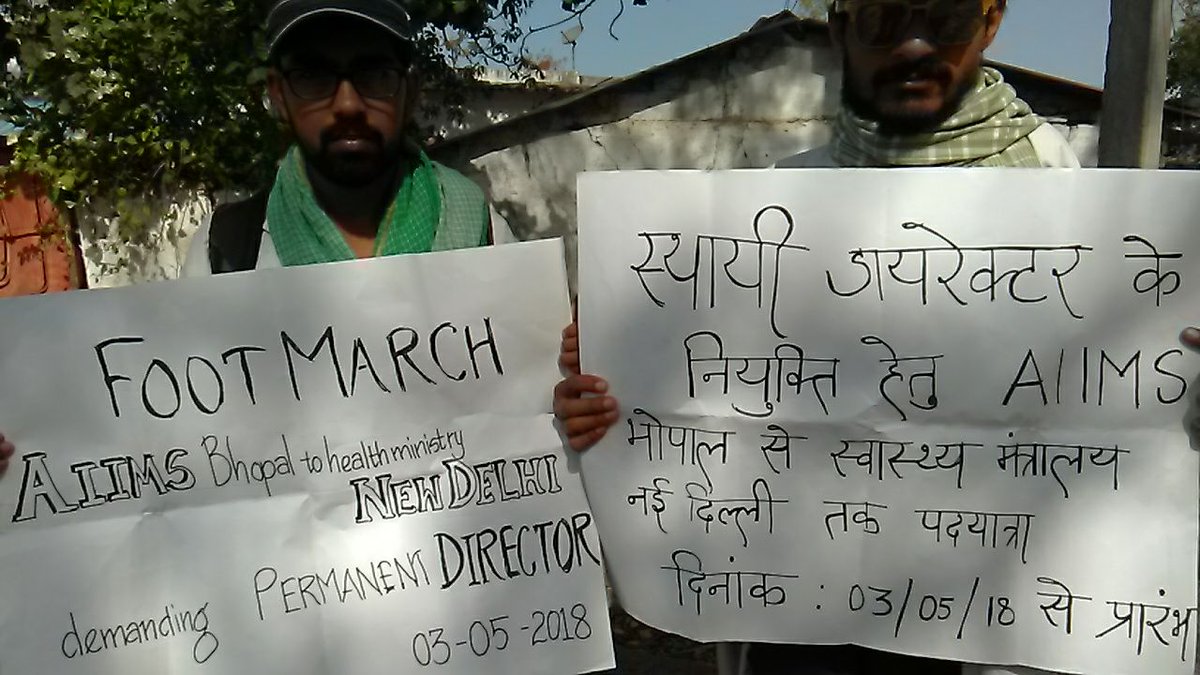 FOOT MARCH
AIIMS Bhopal to health ministry
NEW DELHI
demanding PERMANENT DIRECTOR
03-05-2018
स्थायी डायरेक्टर के
नियुक्ति हेतु AIIMS
भोपाल से स्वास्थ्य मंत्रालय
नई दिल्ली तक पदयात्रा
दिनांक : 03/05/18 से प्रारंभ